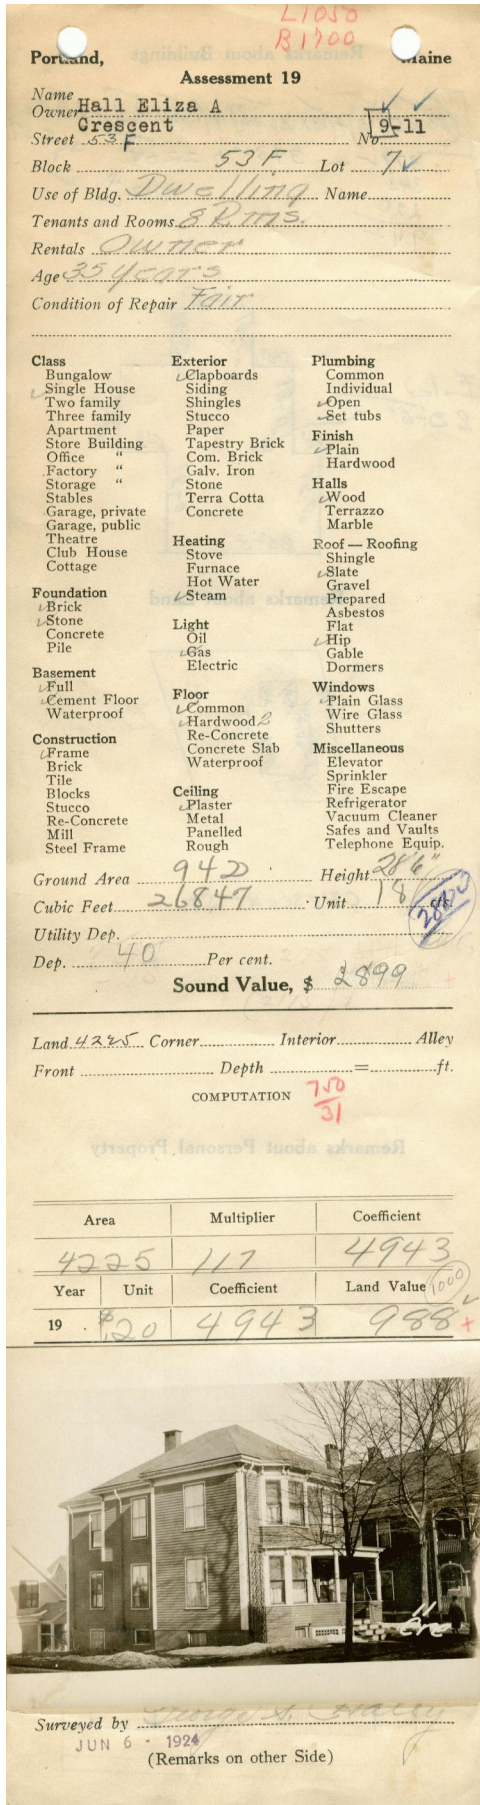 L1050
B1700
Portland, Maine
Assessment 19
Name
Owner Hall Eliza A
Crescent 9-11
Street 53 F No.
Block 53 F Lot 7
Use of Bldg. Dwelling Name
Tenants and Rooms 8 Rms.
Rentals Owner
Age 35 Years
Condition of Repair Fair
Class
Bungalow
Single House
Two family
Three family
Apartment
Store Building
Office "
Factory "
Storage "
Stables
Garage, private
Garage, public
Theatre
Club House
Cottage
Foundation
Brick
Stone
Concrete
Pile
Basement
Full
Cement Floor
Waterproof
Construction
Frame
Brick
Tile
Blocks
Stucco
Re-Concrete
Mill
Steel Frame
Exterior
Clapboards
Siding
Shingles
Stucco
Paper
Tapestry Brick
Com. Brick
Galv. Iron
Stone
Terra Cotta
Concrete
Heating
Stove
Furnace
Hot Water
Steam
Light
Oil
Gas
Electric
Floor
Common
Hardwood 2
Re-Concrete
Concrete Slab
Waterproof
Ceiling
Plaster
Metal
Panelled
Rough
Plumbing
Common
Individual
Open
Set tubs
Finish
Plain
Hardwood
Halls
Wood
Terrazzo
Marble
Roof — Roofing
Shingle
Slate
Gravel
Prepared
Asbestos
Flat
Hip
Gable
Dormers
Windows
Plain Glass
Wire Glass
Shutters
Miscellaneous
Elevator
Sprinkler
Fire Escape
Refrigerator
Vacuum Cleaner
Safes and Vaults
Telephone Equip.
Ground Area 942 Height 28'6"
Cubic Feet 26847 Unit 18 cts.
2800
Utility Dep.
Dep. 40 Per cent.
Sound Value, $ 2899
Land 4225 Corner Interior Alley
Front Depth = ft.
COMPUTATION 750
31
Area Multiplier Coefficient
4225 117 4943
Year Unit Coefficient Land Value 1000
19 $.20 4943 988
11
Cre
Surveyed by George S.
JUN 6 - 1924
(Remarks on other Side)